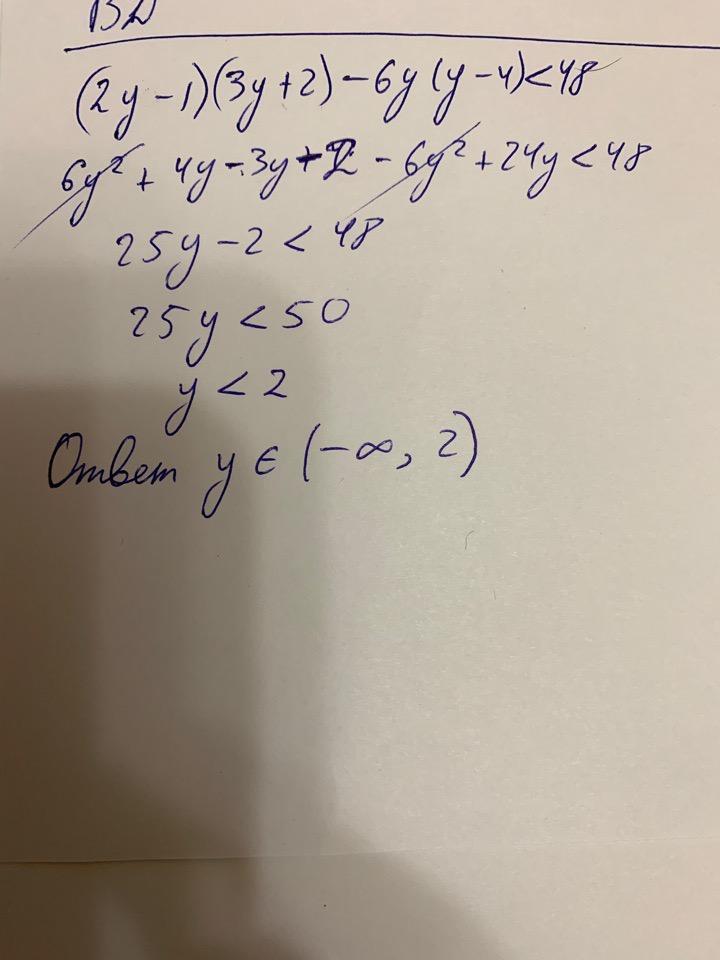 (2y-1)(3y+2)-6y(y-4)<48
6y²+4y-3y-2-6y²+24y<48
25y-2<48
25y<50
y<2
Ответ y∈(-∞, 2)